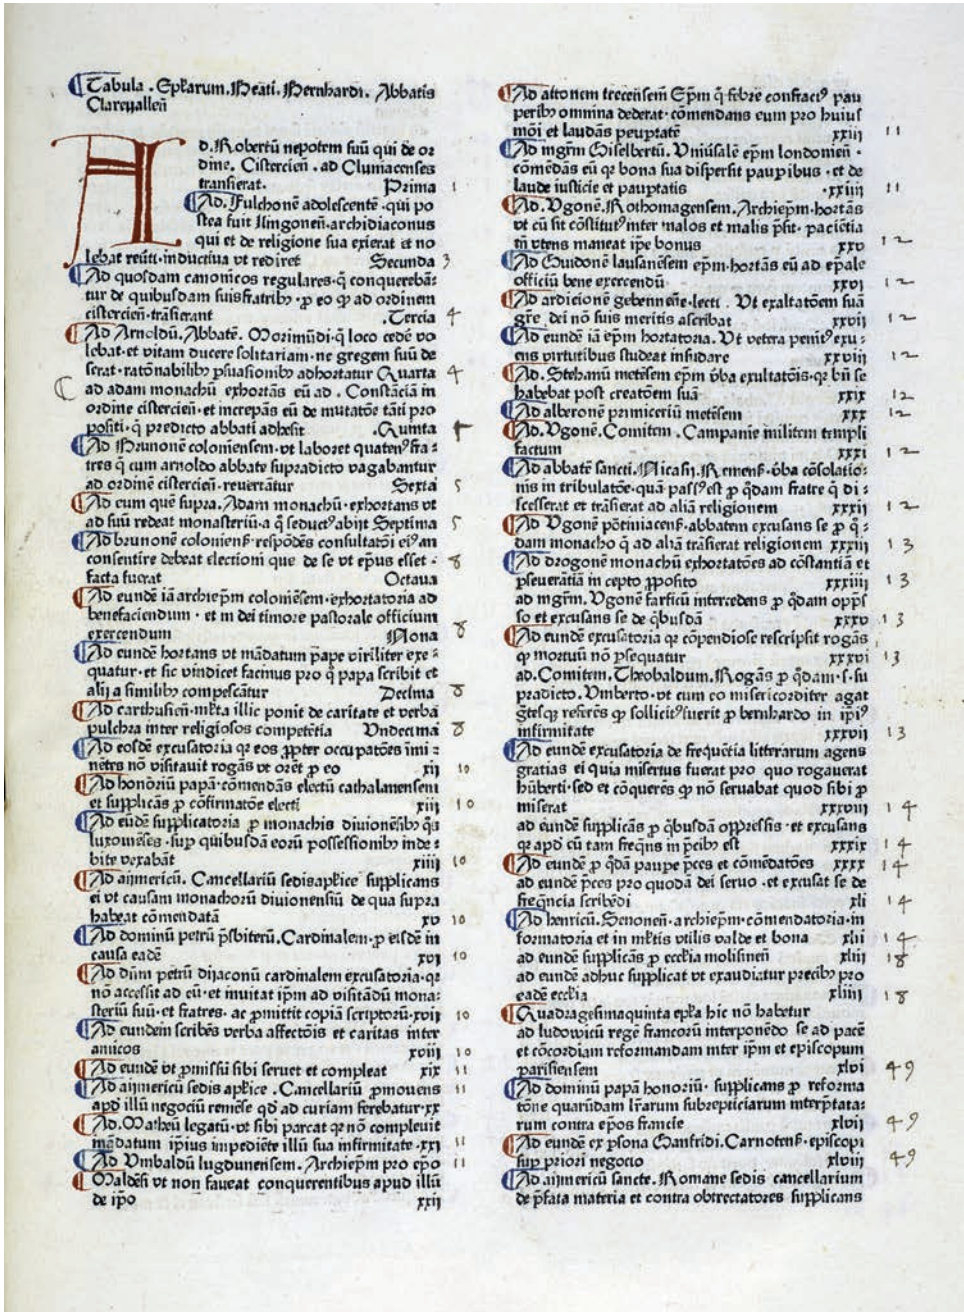 Tabula . Epl̃arum . Beati . Bernhardi . Abbatis
Clareuallen̄
AD . Robertū nepotem suū qui de or
dine . Cistercien̄ . ad Cluniacenses
transierat . Prima 1
Ad . Fulchonē adolescentē . qui po
stea fuit lingonen̄ . archidiaconus
qui et de religione sua exierat et no
lebat reuti . inductiua vt rediret Secunda 3
Ad quosdam canonicos regulares . q̄ conquerebā⸗
tur de quibusdam suis fratribꝫ . ꝓ eo ꝙ ad ordinem
cistercien̄ . trāsierant . Tercia 4
Ad Arnoldū . Abbatē . Morimūdi . q̄ loco cedē vo
lebat . et vitam ducere solitariam . ne gregem suū de
serat . ratōnabilibꝫ ꝑsuasionibꝫ adhortatur Quarta 4
ad adam monachū exhortās eū ad . Constāciā in
ordine cistercien̄ . et increpās eū de mutatōe tāti pro
positi . q̄ predicto abbati adhesit . Quinta
Ad Brunonē coloniensem . vt laboret quaten⁹ fra⸗
tres q̄ cum arnoldo abbate supradicto vagabantur
ad ordinē cistercien̄ . reuertātur Sexta 5
Ad eum quē supra . Adam monachū . exhortans vt
ad suū redeat monasteriū . a q̄ seduct⁹ abijt Septima 5
Ad brunonē coloniens̄ . respōdēs consultatōi ei⁹ an
consentire debeat electioni que de se vt ep̄us esset . 8
facta fuerat Octaua
Ad eundē iā archiep̄m coloniēsem . exhortatoria ad
benefaciendum . et in dei timore pastorale officium
exercendum Nona 8
Ad eundē hortans vt mādatum pape viriliter exe⸗
quatur . et sic vindicet facinus pro q̄ papa scribit et
alij a similibꝫ compescātur Decima 8
Ad carthusien̄ . ml̄ta illic ponit de caritate et verba
pulchra inter religiosos competētia Undecima 8
Ad eosdē excusatoria qꝛ eos ꝓpter occupatōes īmi⸗
nētes nō visitauit rogās vt orēt ꝓ eo xij 10
Ad honoriū papā . cōmendās electū cathalanensem
et supplicās ꝓ cōfirmatōe electi xiij 10
Ad eūdē supplicatoria ꝓ monachis diuionēsibꝫ q̄s
luxouiēses . suꝑ quibusdam eorū possessionibꝫ inde⸗
bite vexabāt xiiij 10
Ad aijmericū . Cancellariū sedis apl̄ice supplicans
ei vt causam monachorū diuionensiū de qua supra
habeat cōmendatā xv 10
Ad dominū petrū p̄sbiterū . Cardinalem . ꝓ eisdē in
causa eadē xvj 10
Ad dūm petrū dijaconū cardinalem excusatoria . qꝛ
nō accessit ad eū . et inuitat ip̄m ad visitādū mona⸗
steriū suū . et fratres . ac ꝓmittit copiā scriptorū . xvij 10
Ad eundem scribēs verba affectōis et caritas inter
amicos xviij 10
Ad eundē vt ꝓmissū sibi seruet et compleat xix 11
Ad aijmericū sedis apl̄ice . Cancellariū ꝓmouens 11
apd̄ illū negociū remēse qd̄ ad curiam ferebatur . xx
Ad . Matheū legatū . vt sibi parcat qꝛ nō compleuit
mādatum ip̄ius impediēte illū sua infirmitate . xxi 11
Ad Umbaldū lugdunensem . Archiep̄m pro ep̄o 11
Maldēsi vt non faueat conquerentibus apud illū
de ip̄o xxij
Ad attonem trecensem Ep̄m q̄ febre confract⁹ pau
peribꝫ omnina dederat . cōmendans eum pro huius
mōi et laudās peuꝑtatē xxiij 11
Ad mgr̄m Giselbertū . Uniūsalē ep̄m londonien̄ .
cōmēdās eū qꝛ bona sua dispersit pauꝑibus . et de
laude iusticie et pauꝑtatis . xxiiij 11
Ad . Ugonē . Rothomagensem . Archiep̄m . hortās
vt cū sit cōstitut⁹ inter malos et malis p̄sit . paciētia
tn̄ vtens maneat ip̄e bonus xxv 12
Ad Guidonē lausanēsem ep̄m . hortās eū ad ep̄ale
officiū bene exercendū xxvj 12
Ad ardicionē gebennen̄ e⸗lecti . Ut exaltatōem suā
gr̄e dei nō suis meritis ascribat xxvij 12
Ad eundē iā ep̄m hortatoria . Ut vetera penit⁹ exu⸗
ens virtutibus studeat insudare xxviij 12
Ad . Stehanū metēsem ep̄m v̄ba exultatōis . qꝛ bn̄ se
habebat post creatōem suā xxix 12
Ad alberonē primiceriū metēsem xxx 12
Ad . Ugonē . Comitem . Campanie militem templi
factum xxxi 12
Ad abbatē sancti . Nicasij . Remens̄ . v̄ba cōsolatio⸗
nis in tribulatōe . quā pass⁹ est ꝓ q̄dam fratre q̄ di⸗
scesserat et trāsierat ad aliā religionem xxxij 12
Ad Ugonē pōtiniacens̄ . abbatem excusans se ꝓ q̄⸗
dam monacho q̄ ad aliā trāsierat religionem xxxiij 13
Ad drogonē monachū exhortatōes ad cōstantiā et
ꝑseuerātiā in cepto ꝓposito xxxiiij 13
ad mgr̄m . Ugonē farsicū intercedens ꝓ q̄dam opp̄s
so et excusans se de q̄busdā xxxv 13
Ad eundē excusatoria qꝛ cōpendiose rescripsit rogās
ꝙ mortuū nō ꝑsequatur xxxvj 13
ad . Comitem . Theobaldum . Rogās ꝓ q̄dam . s . su
pradicto . Umberto . vt cum eo misericorditer agat
gr̄tesqꝫ referēs ꝙ sollicit⁹ fuerit ꝓ bernhardo in ip̄i⁹
infirmitate xxxvij 13
Ad eundē excusatoria de frequētia litterarum agens
gratias ei quia misertus fuerat pro quo rogauerat
hūberti . sed et cōquerēs ꝙ nō seruabat quod sibi ꝓ
miserat xxxviij 14
ad eundē supplicās ꝓ q̄busdā oppressis . et excusans
qꝛ apd̄ eū tam freq̄ns in p̄cibꝫ est xxxix 14
Ad eundē ꝓ q̄dā pauꝑe p̄ces et cōmēdatōes xxxx 14
ad eundē p̄ces pro quodā dei seruo . et excusat se de
freq̄ncia scribēdi xli 14
Ad henricū . Senonen̄ . archiep̄m . cōmendatoria . in
formatoria et in ml̄tis vtilis valde et bona xlij 14
ad eundē supplicās ꝓ eccl̄ia molisinen̄ xliij 18
ad eundē adhuc supplicat vt exaudiatur precibꝫ pro
eadē eccl̄ia xliiij 18
Quadragesimaquinta epl̄a hic nō habetur
ad ludowicū regē francorū interponēdo se ad pacē
et cōcordiam reformandam inter ip̄m et episcopum
parisiensem xlvi 49
Ad dominū papā honoriū . supplicans ꝓ reforma
tōne quarūdam lr̄arum subrepticiarum interp̄tata⸗
rum contra ep̄os francie xlvij 49
Ad eundē ex ꝑsona Ganfridi . Carnotens̄ . episcopi
suꝑ priori negocio xlviij 49
Ad aijmericū sancte . Romane sedis cancellarium
de p̄fata materia et contra obtrectatores supplicans